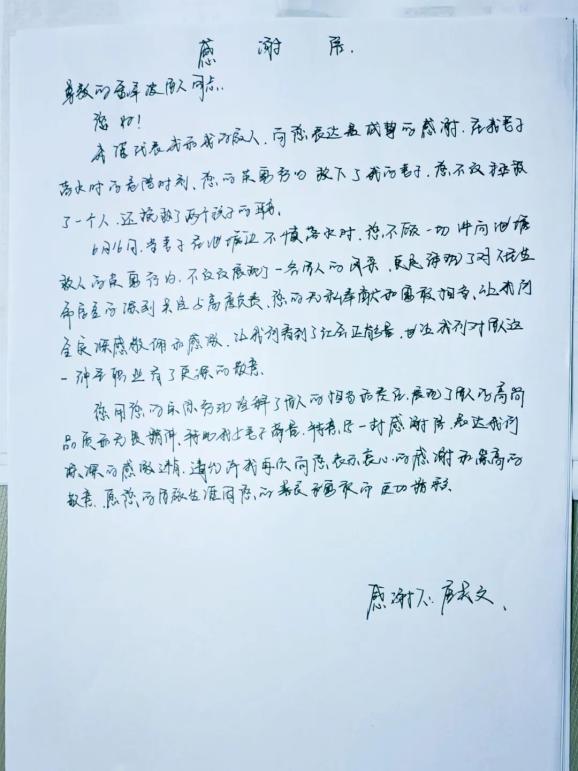 感谢信.
尊敬的 军人同志:
您好!
我 代表我和我的家人,向您表达最诚挚的感谢.在我妻子
落水时的危险时刻,您的英勇行为救下了我的妻子,您不仅拯救
了一个人,还挽救了两个孩子的 .
6月16日,当妻子在池塘边不慎落水时,您不顾一切冲向池塘
救人的英勇行为,不仅仅展现了一名军人的 ,更是 了对 生
命 的深刻 与高度负责,您的无私奉献和勇敢担当,让我们
全家深感敬佩和感激,让我们看到了社会正能量,也让我们对军人这
一神圣职业有了更深的敬意.
您用您的实际行动诠释了军人的担当和责任,展现了军人的高尚
品质和无畏精神, 我与妻子商量,特意写一封感谢信,表达我们
深深的感激之情,请允许我再次向您表示衷心的感谢和崇高的
敬意.愿您的军旅生涯因您的善良和勇敢而更加精彩.
感谢人: 文